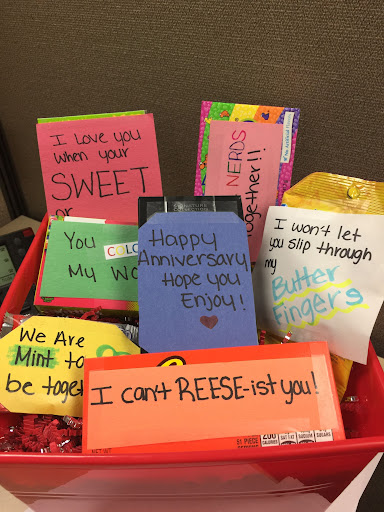 I love you
when your
SWEET
or
NERDS
together!!
You COLO
My Wo
Happy
Anniversary
Hope you
Enjoy!
I won't let
you slip through
my
Butter
Fingers
We Are
Mint to
be toget
I can't REESE-ist you!
51 PIECE
200
CALORIES
SAT FAT
SODIUM
SUGARS
NET WT